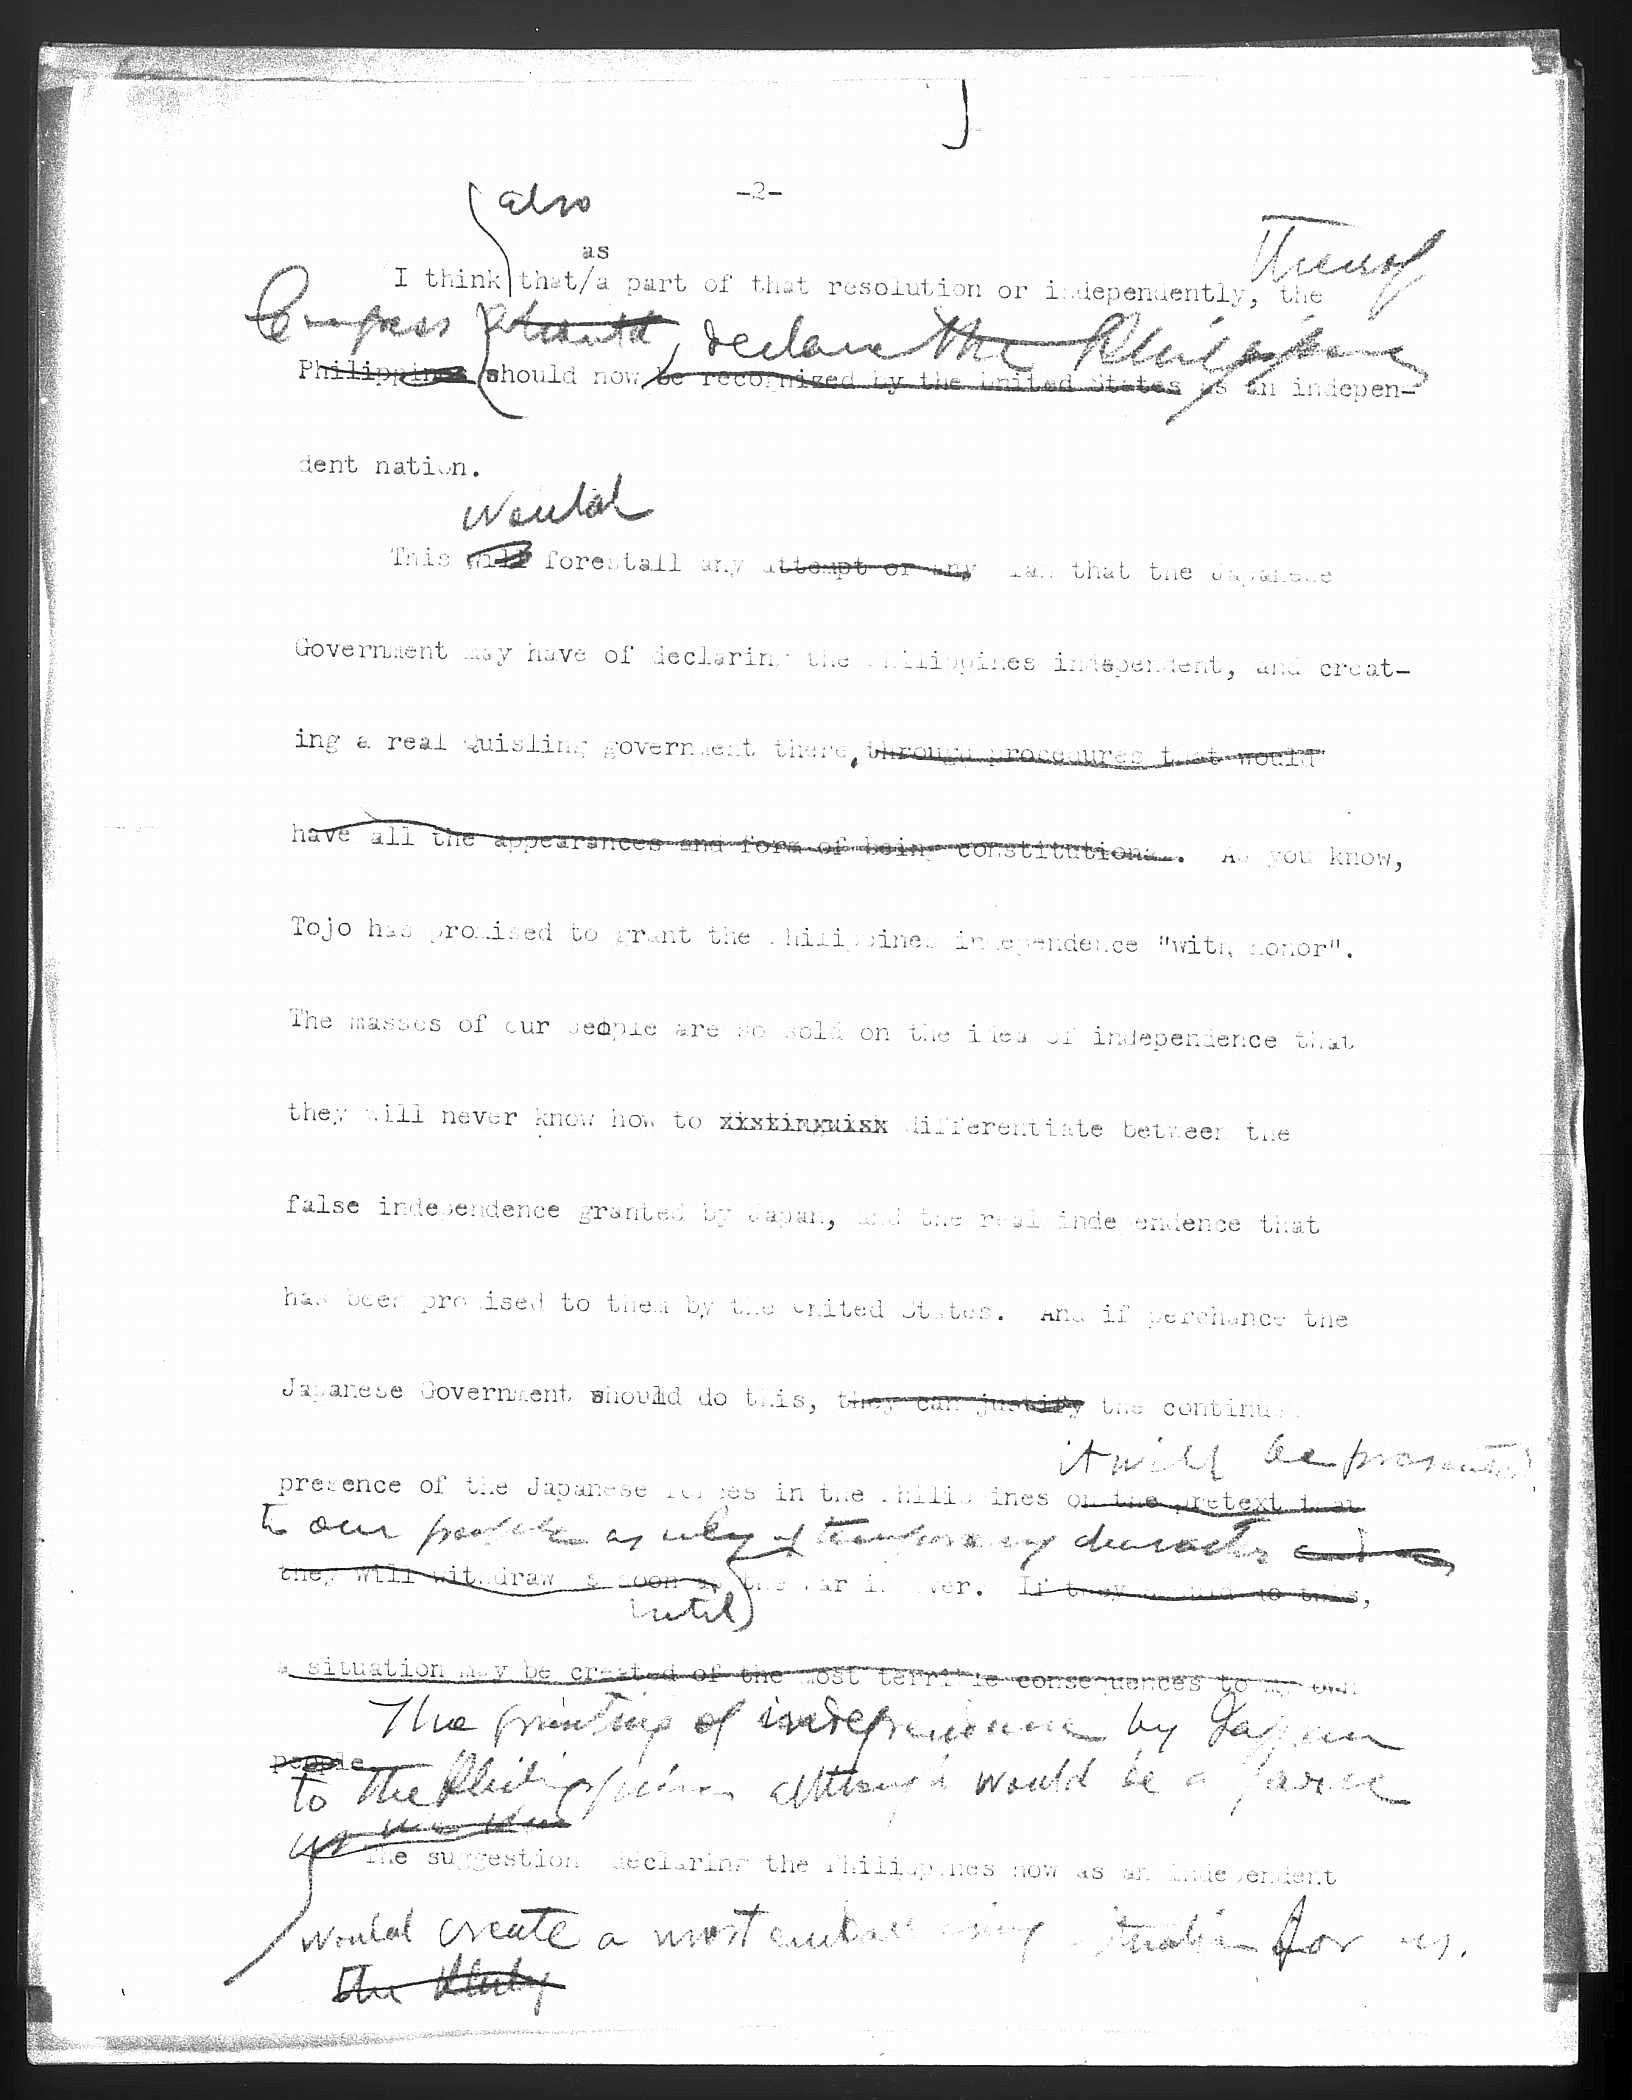 -2-
also
as
I think that/a part of that resolution or independently, the
thereof
Congress should, declare the Philippines
Philippines should now be recognized by the United States as an indepen-
dent nation.
would
This will forestall any attempt or any plan that the Japanese
Government may have of declaring the Philippines independent, and creat-
ing a real Quisling government there, through procedures that would
have all the appearances and form of being constitutional. As you know,
Tojo has promised to grant the Philippines independence "with honor".
The masses of our people are so sold on the idea of independence that
they will never know how to xixtinxuisx differentiate between the
false independence granted by Japan, and the real independence that
has been promised to them by the United States. And if perchance the
Japanese Government should do this, they can justify the continued
it will be presented
presence of the Japanese forces in the Philippines on the pretext that
to our people as only of temporary character
they will withdraw as soon as the war is over. If they should do this,
until
a situation may be created of the most terrible consequences to my own
The granting of independence by Japan
people.
to the Philippines although would be a farce
The suggestion declaring the Philippines now as an independent
would create a most embarrassing situation for us.
the Phily